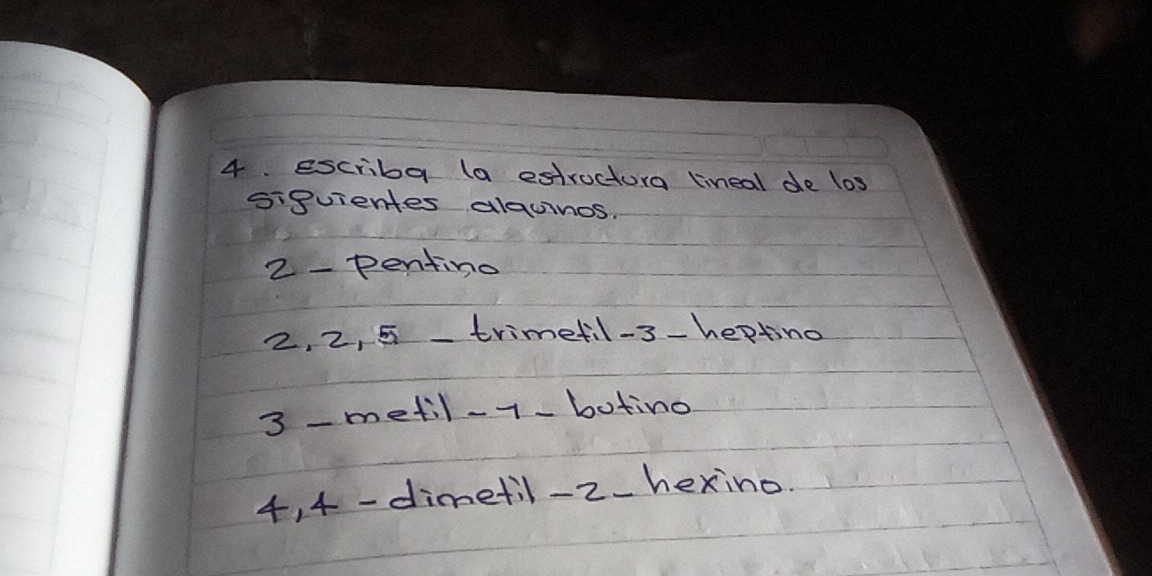 4. escriba la estructura lineal de los
siguientes alquinos.
2 - pentino
2,2,5 - trimetil-3-heptino
3 - metil - 1 - butino
4,4 - dimetil - 2 - hexino.